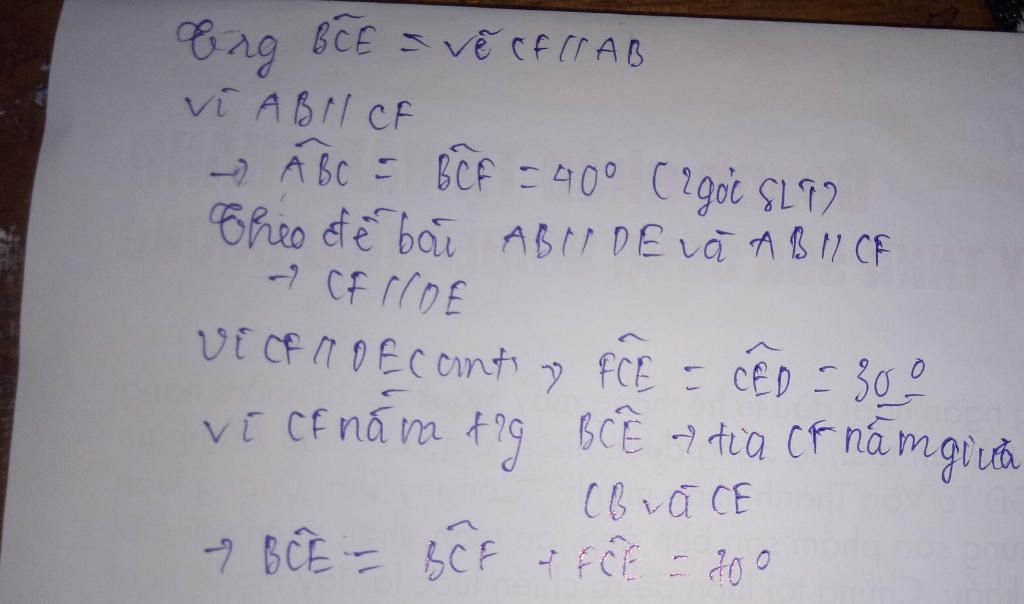 Trg BCÊ = vẽ CF // AB
vì AB // CF
→ ABC = BCF = 40° (2 góc SLT)
Theo đề bài AB // DE và AB // CF
→ CF // DE
Vì CF // DE (cmt) → FCE = CED = 30°
vì CF nằm trg BCE → tia CF nằm giữa
CB và CE
→ BCE = BCF + FCE = 70°